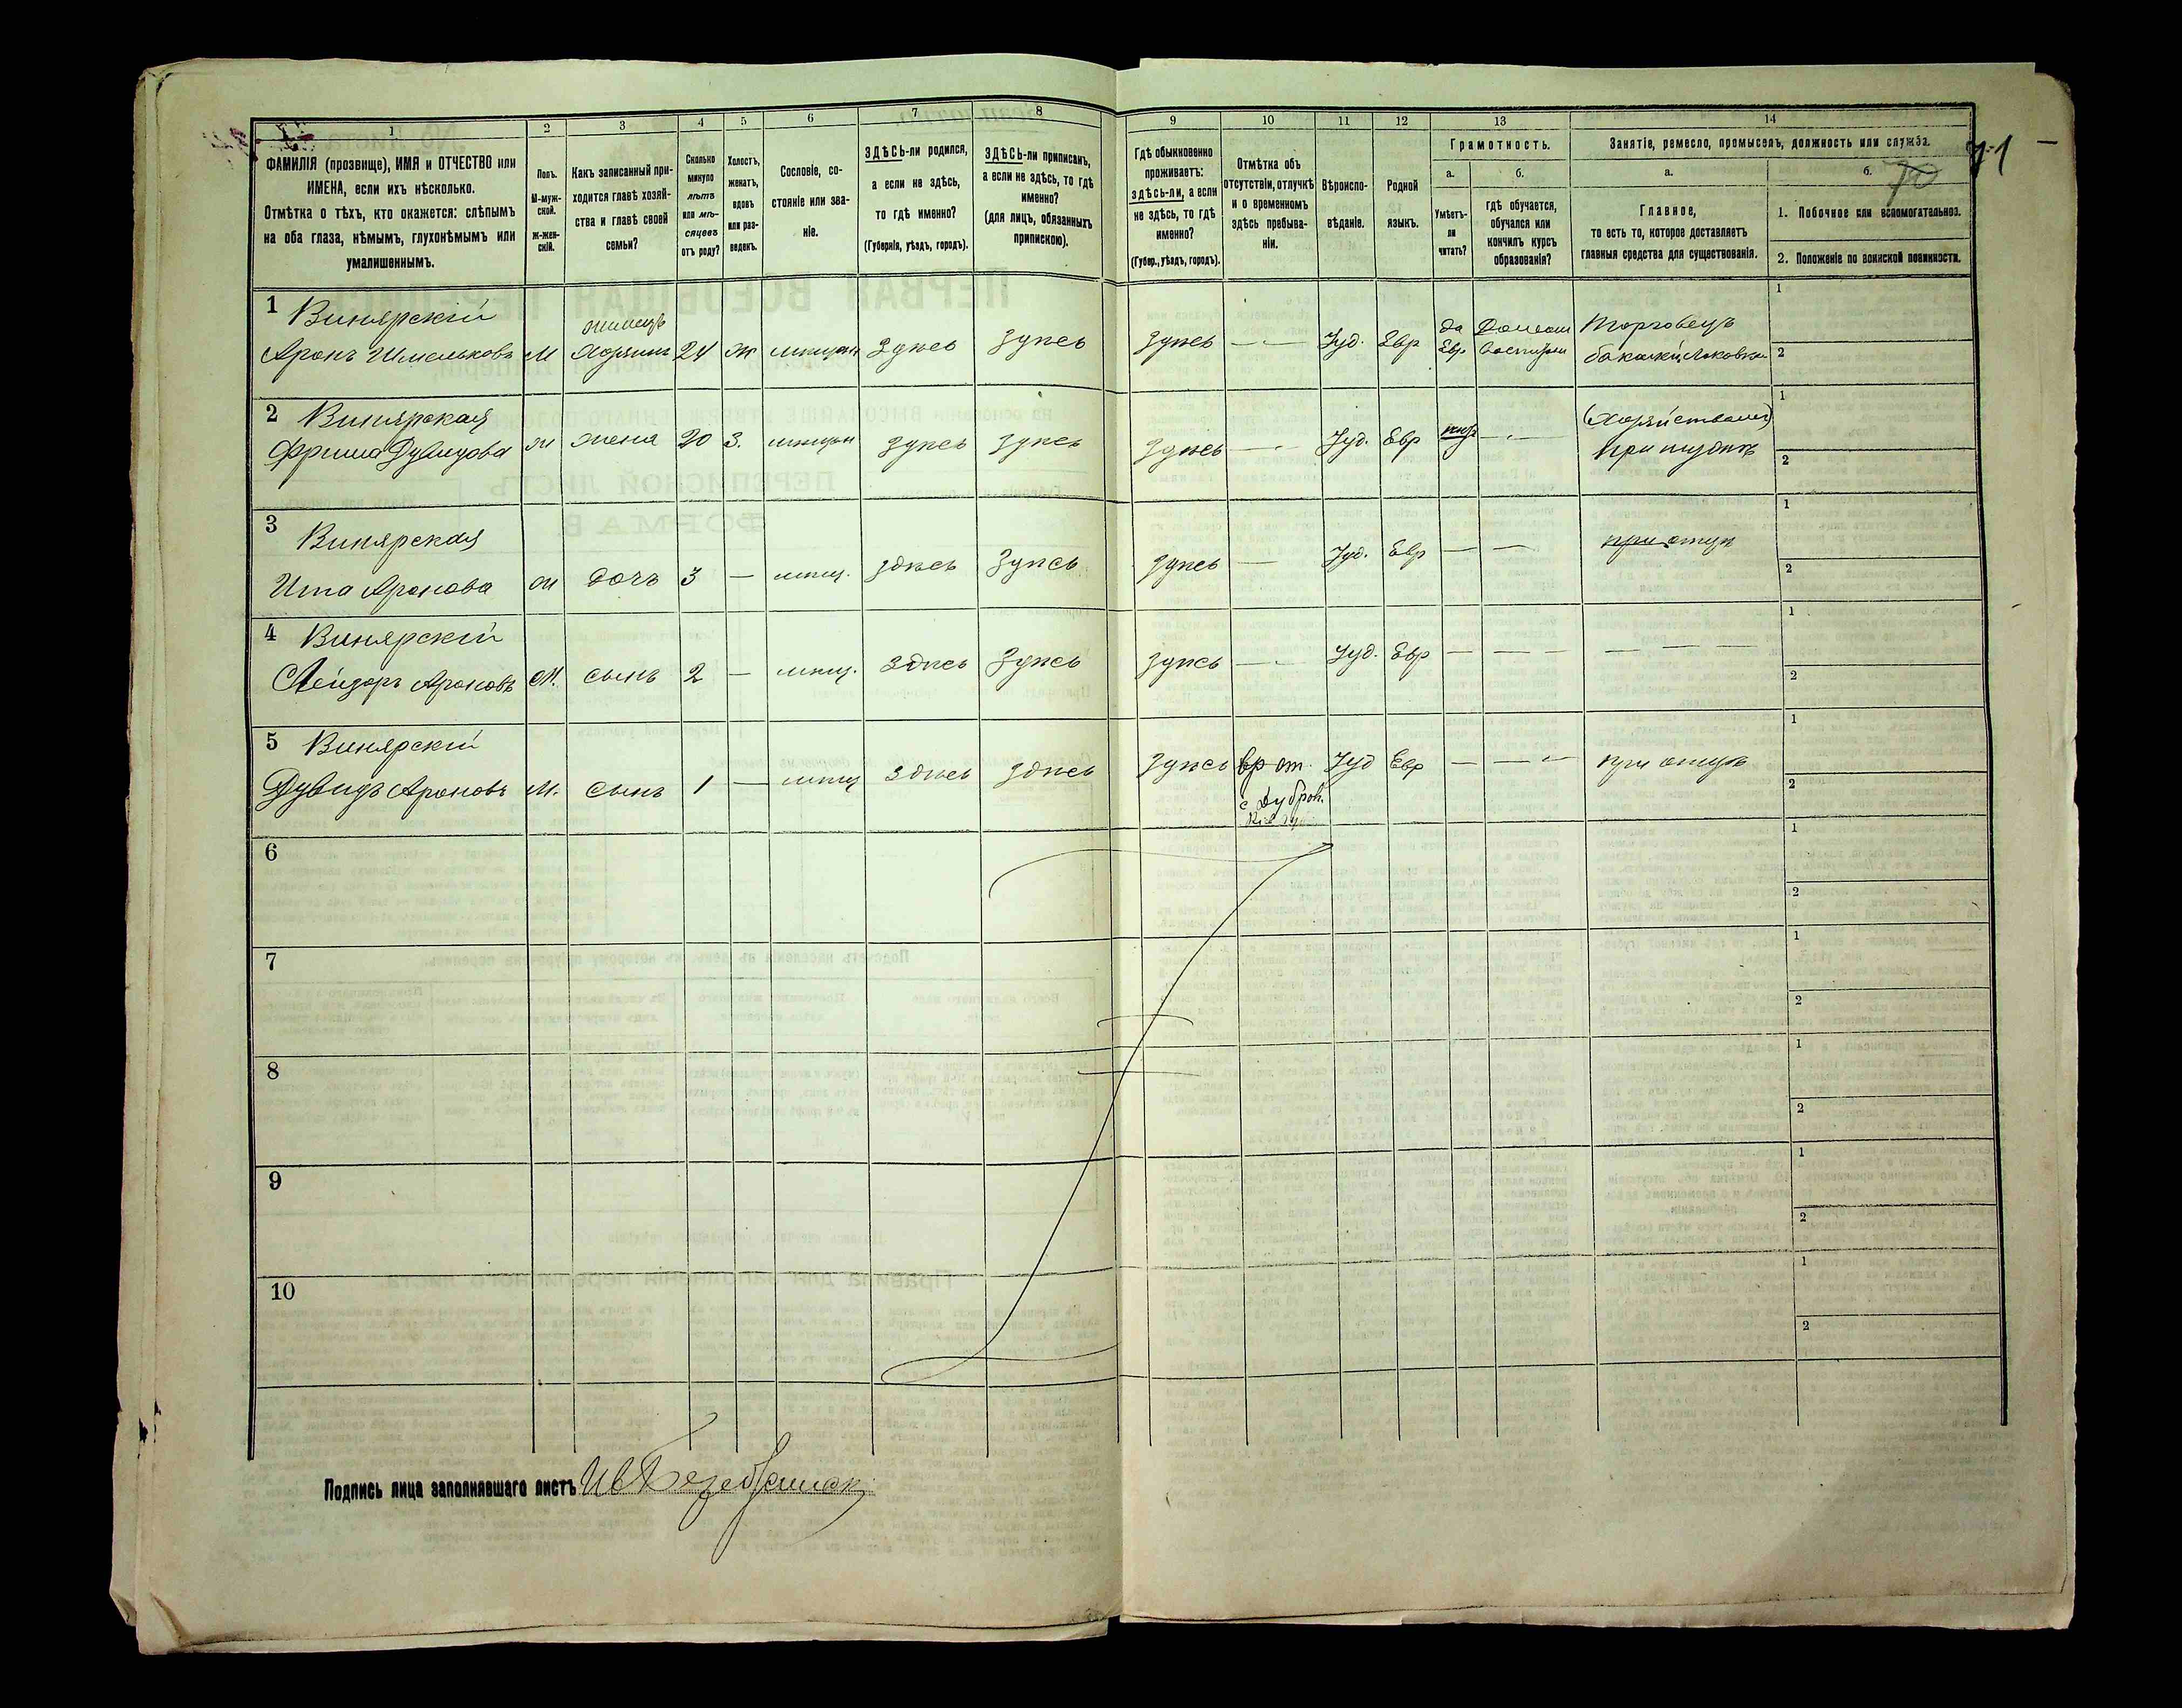 1
2
3
4
5
6
7
8
ФАМИЛІЯ (прозвище), ИМЯ и ОТЧЕСТВО или
ИМЕНА, если ихъ нѣсколько.
Отмѣтка о тѣхъ, кто окажется: слѣпымъ
на оба глаза, нѣмымъ, глухонѣмымъ или
умалишеннымъ.
Полъ.
М-муж-
ской.
ж-жен-
скій.
Какъ записанный при-
ходится главѣ хозяй-
ства и главѣ своей
семьи?
Сколько
минуло
лѣтъ
или мѣ-
сяцевъ
отъ роду?
Холостъ,
женатъ,
вдовъ
или раз-
веденъ.
Сословіе, со-
стояніе или зва-
ніе.
ЗДѢСЬ-ли родился,
а если не здѣсь,
то гдѣ именно?
(Губернія, уѣздъ, городъ).
ЗДѢСЬ-ли приписанъ,
а если не здѣсь, то гдѣ
именно?
(для лицъ, обязанныхъ
припискою).
9
10
11
12
13
14
Гдѣ обыкновенно
проживаетъ:
здѣсь-ли, а если
не здѣсь, то гдѣ
именно?
(Губер., уѣздъ, городъ).
Отмѣтка объ
отсутствіи, отлучкѣ
и о временномъ
здѣсь пребыва-
ніи.
Вѣроиспо-
вѣданіе.
Родной
языкъ.
Грамотность.
а.
Умѣетъ-
ли
читать?
б.
гдѣ обучается,
обучался или
кончилъ курсъ
образованія?
Занятіе, ремесло, промыселъ, должность или служба.
а.
Главное,
то есть то, которое доставляетъ
главныя средства для существованія.
б.
1. Побочное или вспомогательное.
2. Положеніе по воинской повинности.
70
71
1 Винярскій
Аронъ Шмельковъ М жилецъ хозяинъ 24 ж мѣщан здѣсь здѣсь здѣсь — Іуд. Евр да Евр Торговецъ
1
2
2 Винярская
Фрима Дувидова ж жена 20 з. мѣщан здѣсь здѣсь здѣсь — Іуд. Евр — (Хозяйства) при мужѣ
1
2
3 Винярская
Ита Аронова ж дочь 3 — мѣщ. здѣсь здѣсь здѣсь — Іуд. Евр — — при отцѣ
1
2
4 Винярскій
Лейзоръ Ароновъ М. сынъ 2 — мѣщ. здѣсь здѣсь здѣсь — Іуд. Евр — — — — — —
1
2
5 Винярскій
Дувидъ Ароновъ М. сынъ 1 — мѣщ здѣсь здѣсь здѣсь вр от. Іуд Евр — — — при отцѣ
1
2
6
1
2
7
1
2
8
1
2
9
1
2
10
1
2
Подпись лица заполнявшаго листъ